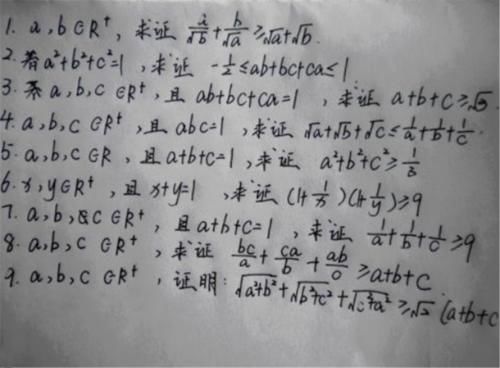 1. a,b∈R⁺, 求证 a/√b + b/√a ≥ √a+√b.
2. 若a²+b²+c²=1, 求证 -1/2≤ab+bc+ca≤1
3. a,b,c∈R⁺, 且 ab+bc+ca=1, 求证 a+b+c≥√3
4. a,b,c∈R⁺, 且 abc=1, 求证 √a+√b+√c≤1/a+1/b+1/c.
5. a,b,c∈R, 且 a+b+c=1, 求证 a²+b²+c²≥1/3
6. x,y∈R⁺, 且 x+y=1, 求证 (1+1/x)(1+1/y)≥9
7. a,b,c∈R⁺, 且a+b+c=1, 求证 1/a+1/b+1/c≥9
8. a,b,c∈R⁺, 求证 bc/a+ca/b+ab/c≥a+b+c
9. a,b,c∈R⁺, 证明: √a²+b²+√b²+c²+√c²+a²≥√2(a+b+c